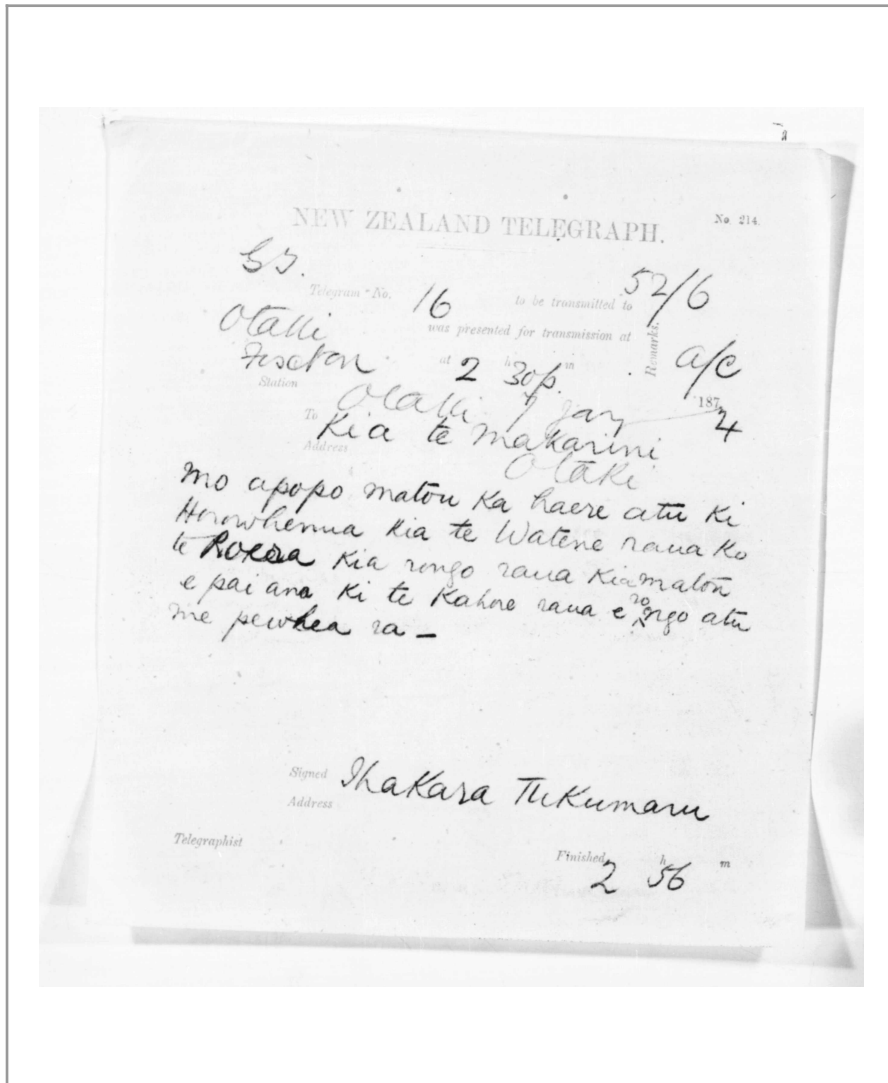 NEW ZEALAND TELEGRAPH.
No. 214.
Telegram No. 16 to be transmitted to 52/6
Otaki was presented for transmission at Remarks.
Foxton at 2 h 30 p. m a/c
Station
Otaki 7 Jany 1874
To Kia te Makarini
Address Otaki
Mo apopo matou Ka haere atu Ki
Horowhenua Kia te Watene raua Ko
te Roera Kia rongo raua Kia matou
e pai ana Ki te Kahore raua e rongo atu
me pewhea ra —
Signed Ihakara Tukumaru
Address
Telegraphist
Finished 2 h 56 m